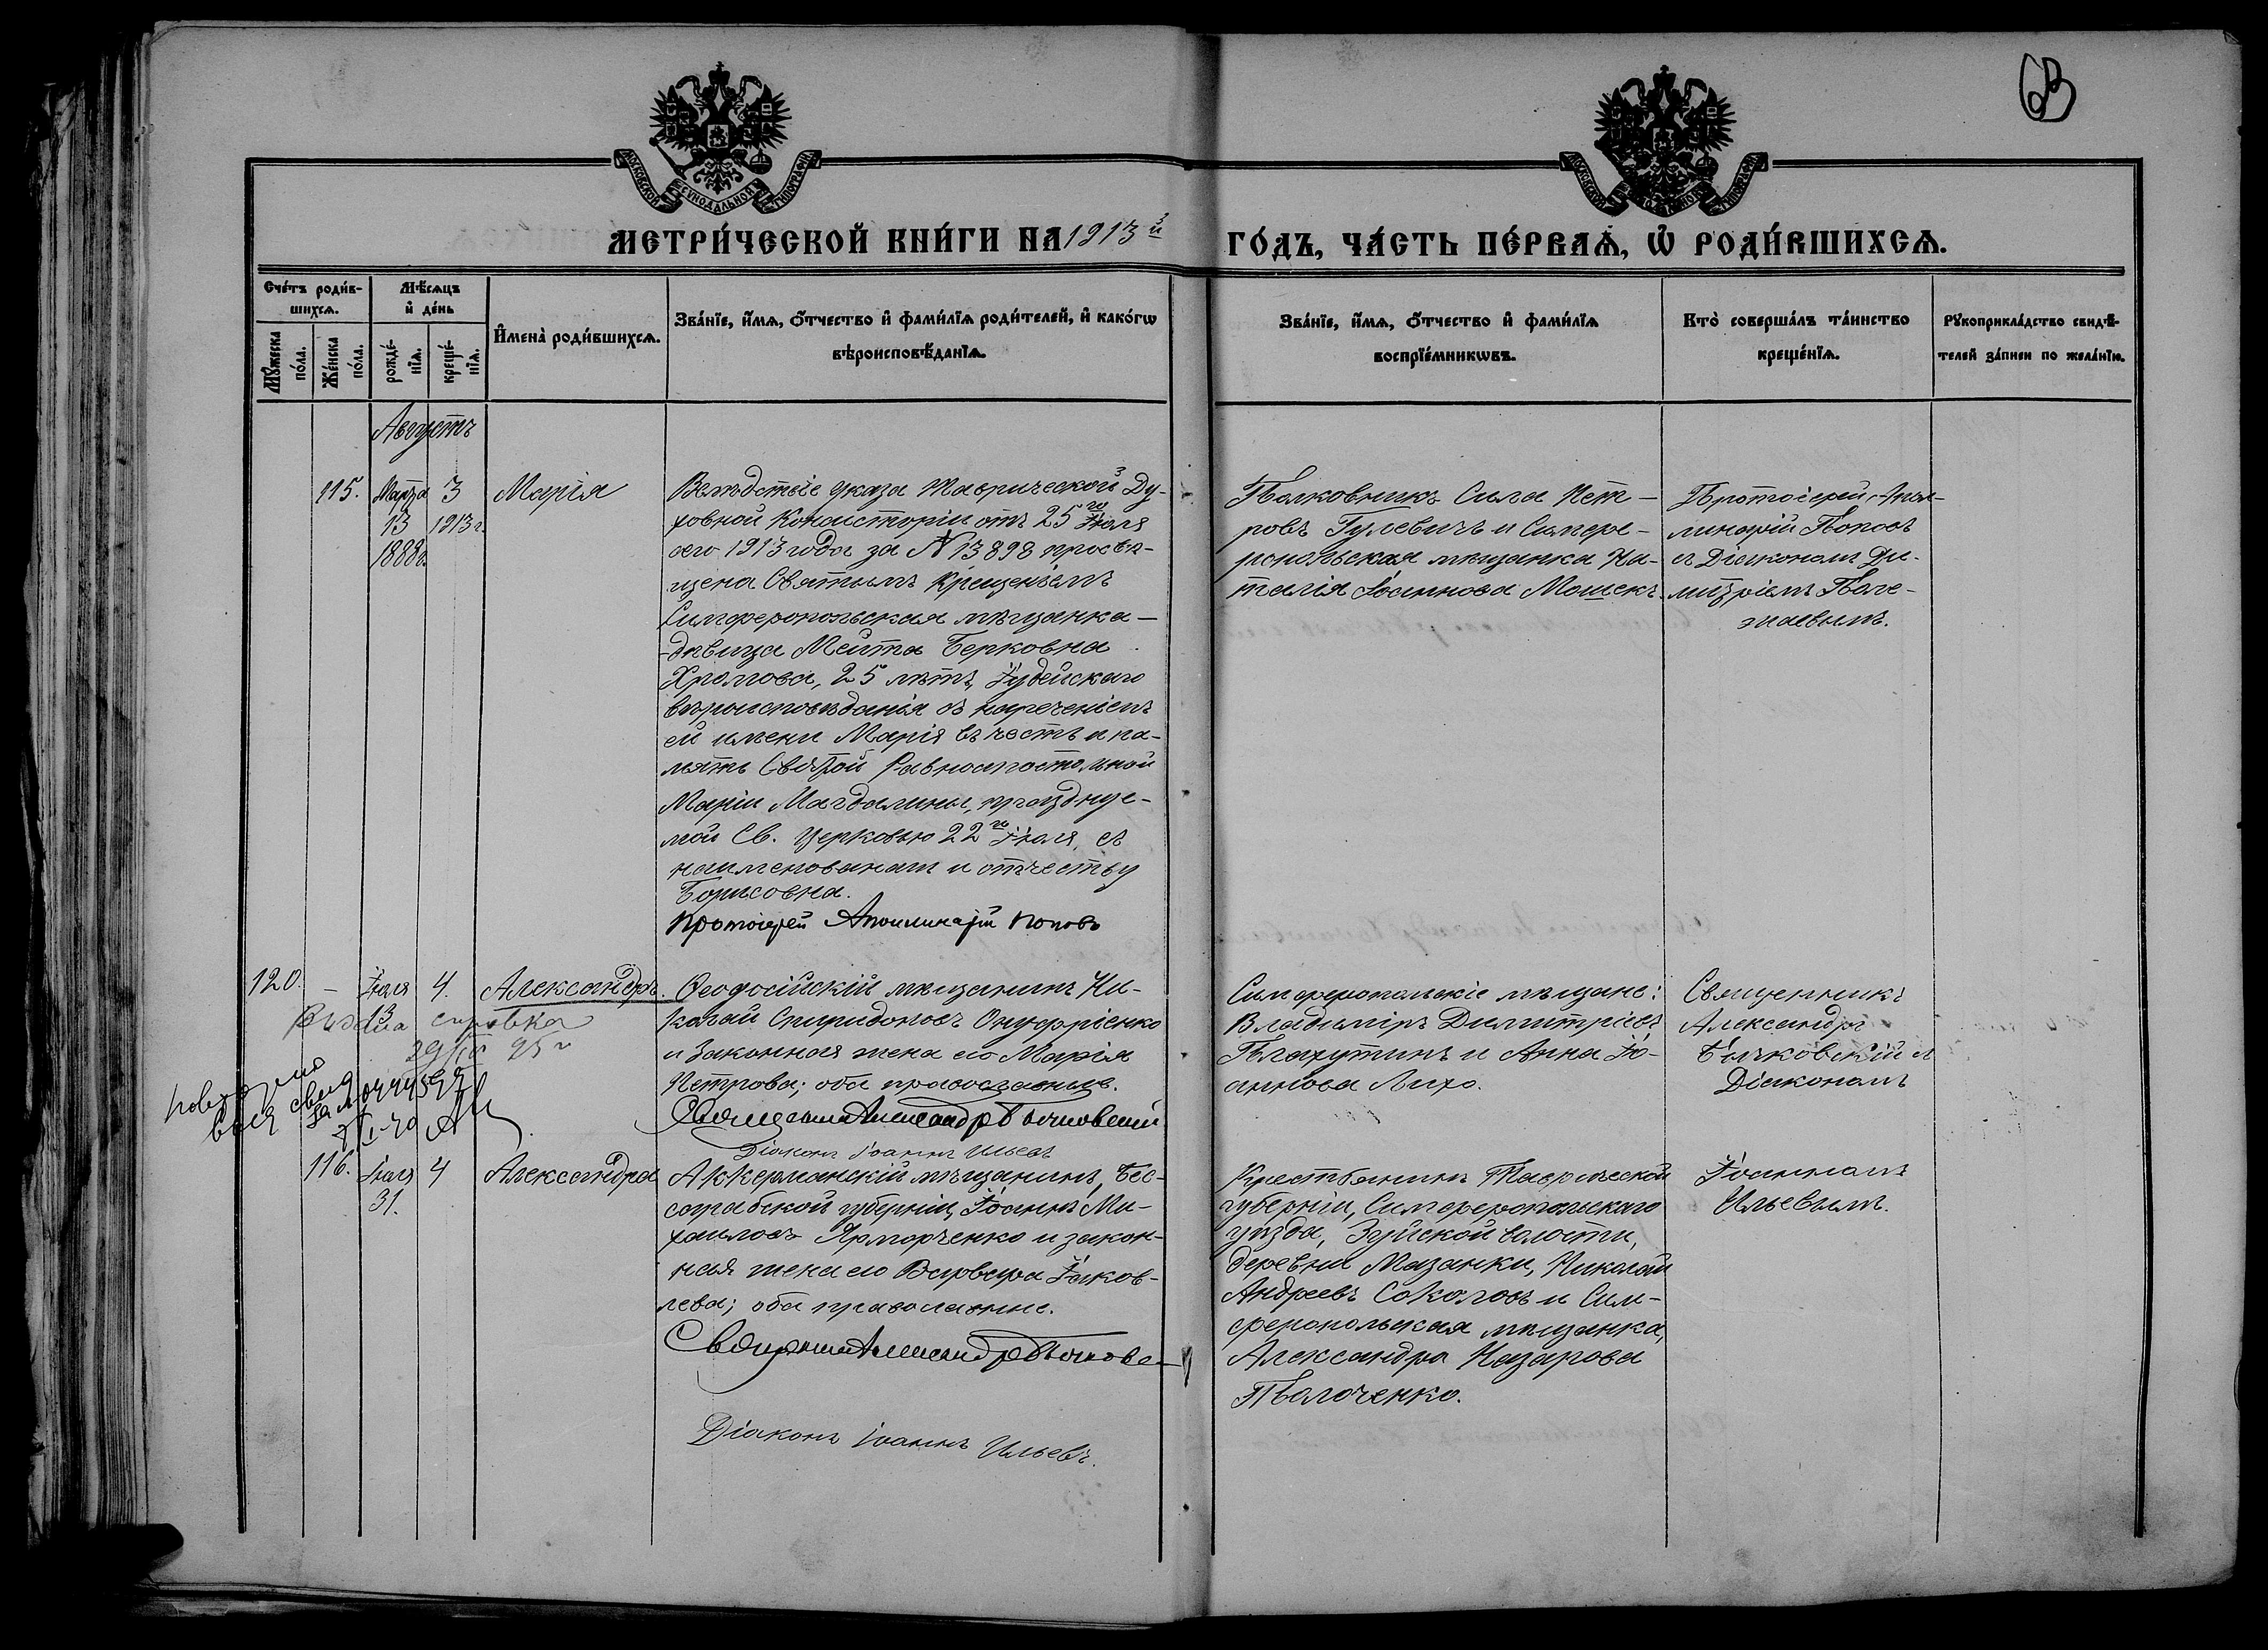 63
МОСКОВСКОЙ СѴНОДАЛЬНОЙ ТИПОГРАФІИ
МЕТРИ́ЧЕСКОЙ КНИ́ГИ НА 1913й
ГО́ДЪ, ЧА́СТЬ ПЕ́РВАѦ, Ѡ҆ РОДИ́ВШИХСѦ.
Сче́тъ роди́в-
шихсѧ.
Мꙋ́жеска
по́ла.
Же́нска
по́ла.
Мѣ́сѧцъ
и҆ де́нь
рожде́-
нїѧ.
креще́-
нїѧ.
И҆мена̀ роди́вшихсѧ.
Зва́нїе, и҆́мѧ, о҆́тчество и҆ фами́лїѧ роди́телей, и҆ како́гѡ
вѣроисповѣ́данїѧ.
Зва́нїе, и҆́мѧ, о҆́тчество и҆ фами́лїѧ
воспрїе́мникѡвъ.
Кто̀ соверша́лъ та́инство
креще́нїѧ.
Рꙋкоприкла́дство свидѣ́-
телей за́писи по жела́нїю.
Августъ
115.
Марта
13
1888г.
3
1913г.
Марія
Вслѣдствіе указа Таврической Ду-
ховной Консисторіи отъ 25го Іюля
сего 1913 года за N 13898 просвѣ-
щена Святымъ Крещеніемъ
Симферопольская мѣщанка-
-дѣвица Мейта Берковна
Хромова, 25 лѣтъ, Іудейскаго
вѣроисповѣданія съ нареченіемъ
ей имени Марія въ честь и па-
мять Святой Равноапостольной
Маріи Магдалины, празднуе-
мой Св. Церковью 22го Іюля, съ
наименованіемъ и отчеству
Борисовна.
Протоіерей Аполлинарій Поповъ
Полковникъ Сила Пет-
ровъ Гулевичъ и Симфе-
ропольская мѣщанка На-
талія Іоаннова Мошекъ.
Протоіерей Апол-
линарій Поповъ
съ Діакономъ Ди-
митріемъ Поле-
жаевымъ.
120.
-
Іюля
13
4.
Александръ.
Ѳеодосійскій мѣщанинъ Ни-
колай Спиридоновъ Онуфріенко
и законная жена его Марія
Петрова; оба православные.
Священникъ Александръ Бычковскій
Діаконъ Іоаннъ Ильевъ
Симферопольскіе мѣщане:
Владиміръ Димитріевъ
Плахутинъ и Анна Іо-
аннова Лихо.
Священникъ
Александръ
Бычковскій съ
Діакономъ
Іоанномъ
Ильевымъ.
справка
свид
116.
Іюля
31.
4
Александра
Аккерманскій мѣщанинъ, Бес-
сарабской губерніи, Іоаннъ Ми-
хаиловъ Ярморченко и закон-
ная жена его Варвара Іаков-
лева; оба православные.
Священникъ Александръ Бычковс-й
Діаконъ Іоаннъ Ильевъ.
Крестьянинъ Таврической
губерніи, Симферопольскаго
уѣзда, Зуйской волости,
деревни Мазанки, Николай
Андреевъ Соколовъ и Сим-
феропольская мѣщанка,
Александра Назарова
Пволоченко.